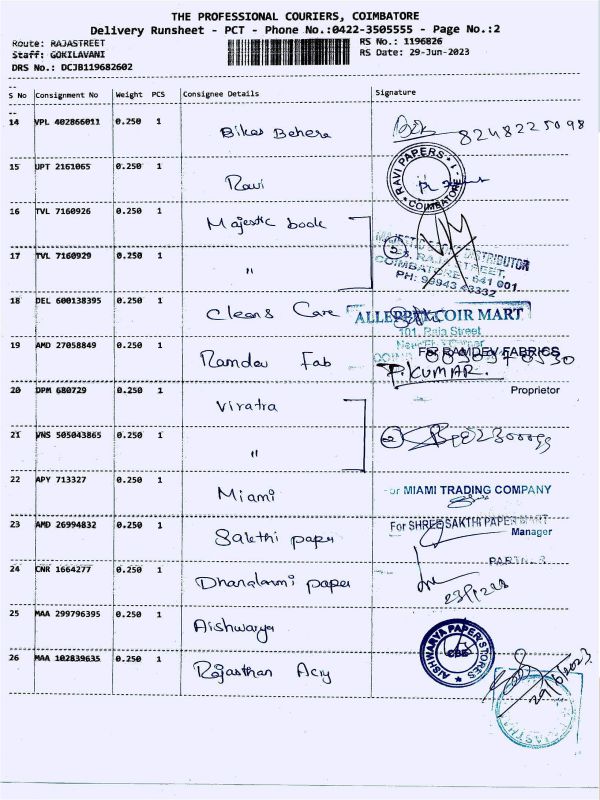 THE PROFESSIONAL COURIERS, COIMBATORE
Delivery Runsheet - PCT - Phone No.:0422-3505555 - Page No.:2
Route: RAJASTREET RS No.: 1196826
Staff: GOKILAVANI RS Date: 29-Jun-2023
DRS No.: DCJB119682602
S No Consignment No Weight PCS Consignee Details Signature
14 VPL 402866011 0.250 1 Bikas Behera 8248225098
15 UPT 2161065 0.250 1 Ravi
RAVI PAPERS COIMBATORE
16 TVL 7160926 0.250 1 Majestic book
DISTRIBUTOR
17 TVL 7160929 0.250 1 "
COIMBATORE - 641 001.
18 DEL 600138395 0.250 1 Cleans Care
ALLEPPEY COIR MART
101, Raja Street
19 AMD 27058849 0.250 1 Ramdev Fab
For RAMDEV FABRICS
P. KUMAR.
Proprietor
20 DPM 680729 0.250 1 Viratra
21 VNS 505043865 0.250 1 "
22 APY 713327 0.250 1 Miami
For MIAMI TRADING COMPANY
23 AMD 26994832 0.250 1 Sakthi paper
For SHREE SAKTHI PAPER MART
Manager
24 CNR 1664277 0.250 1 Dhanalaxmi paper
25 MAA 299796395 0.250 1 Aishwarya
AISHWARYA PAPER STORES
CBE
26 MAA 102839635 0.250 1 Rajasthan Acry
29/6/2023